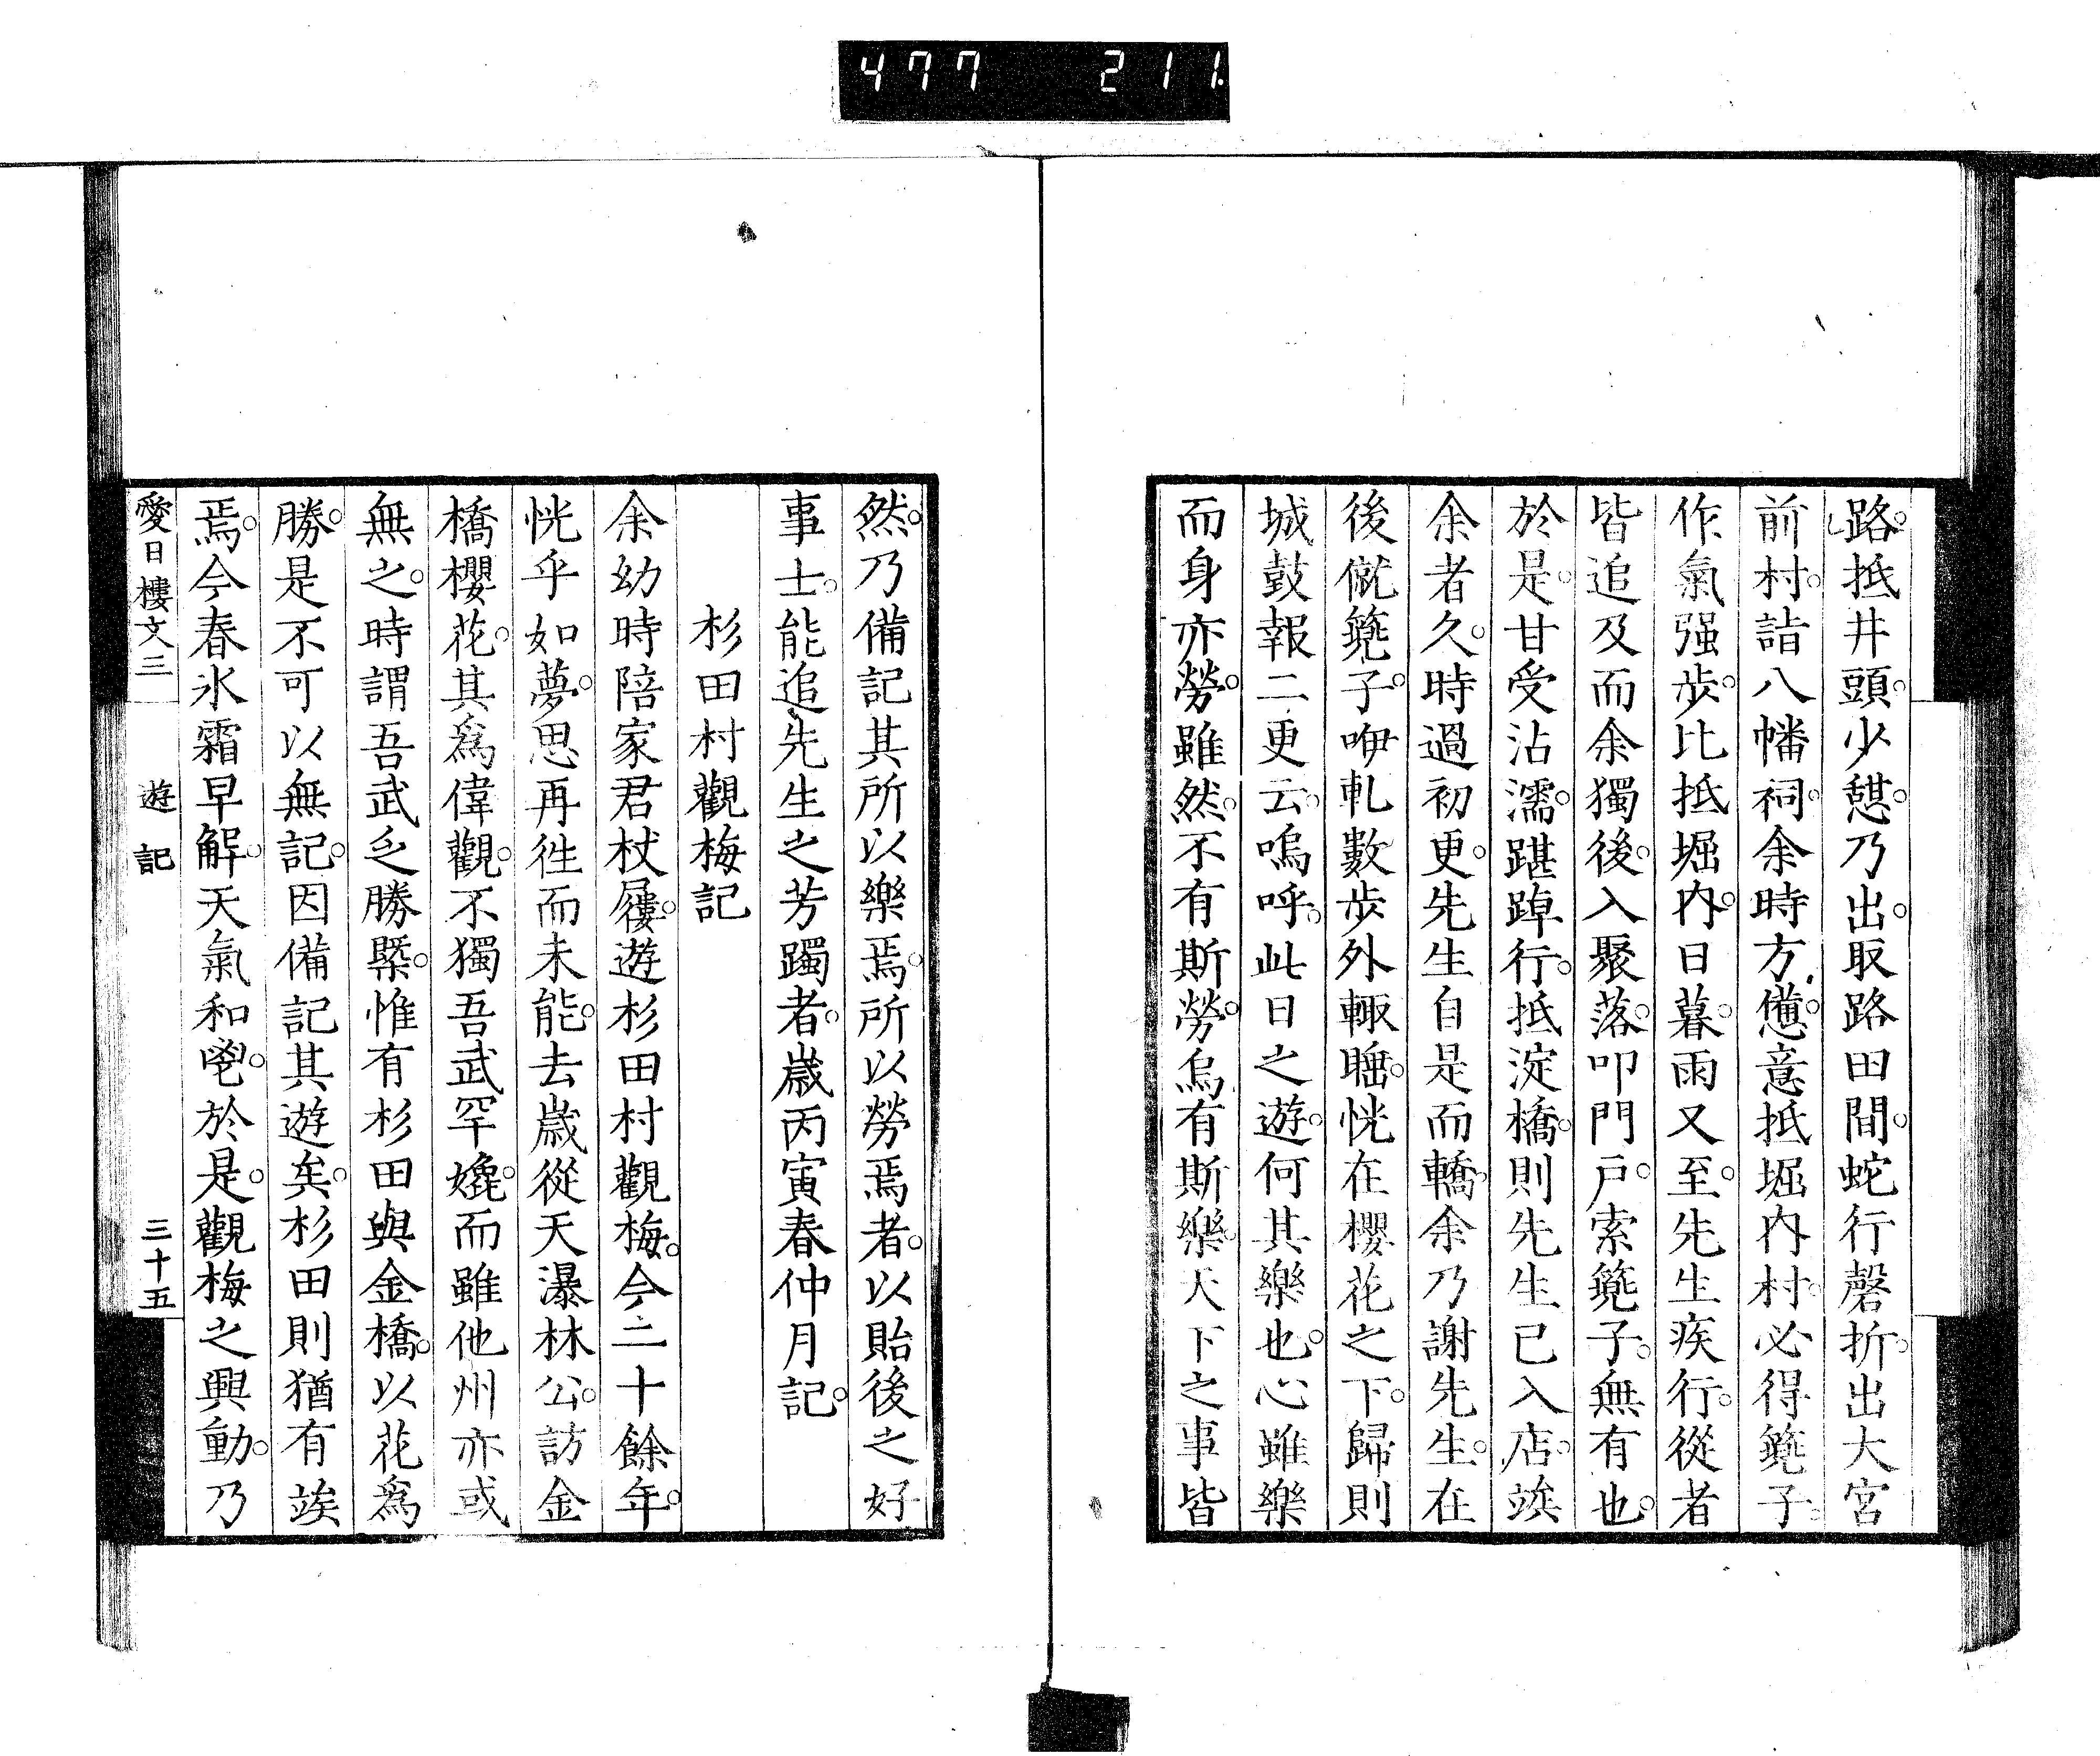 477 211.
路。抵井頭。少憩。乃出。取路田間。蛇行磬折。出大宮
前村。詣八幡祠。余時方憊。意抵堀內村。必得籃子。
作氣强步。比抵堀內。日暮。雨又至。先生疾行。從者
皆追及而余獨後。入聚落。叩門戶。索籃子。無有也。
於是。甘受沾濡。踸踔行。抵淀橋。則先生已入店。竢
余者久。時過初更。先生自是而轎。余乃謝先生。在
後僦籃子。咿軋數步外輙睡。恍在櫻花之下。歸則
城鼓報二更云。嗚呼。此日之遊。何其樂也。心雖樂
而身亦勞。雖然。不有斯勞。烏有斯樂。天下之事皆
然。乃備記其所以樂焉。所以勞焉者。以貽後之好
事士。能追先生之芳躅者。歲丙寅春仲月記。
杉田村觀梅記
余幼時陪家君杖屨。遊杉田村觀梅。今二十餘年。
恍乎如夢。思再徃而未能。去歲從天瀑林公。訪金
橋櫻花。其爲偉觀。不獨吾武罕嬎。而雖他州亦或
無之。時謂吾武乏勝槩。惟有杉田與金橋。以花爲
勝。是不可以無記。因備記其遊矣。杉田則猶有竢
焉。今春氷霜早解。天氣和鬯。於是。觀梅之興動。乃
愛日樓文三 遊記 三十五